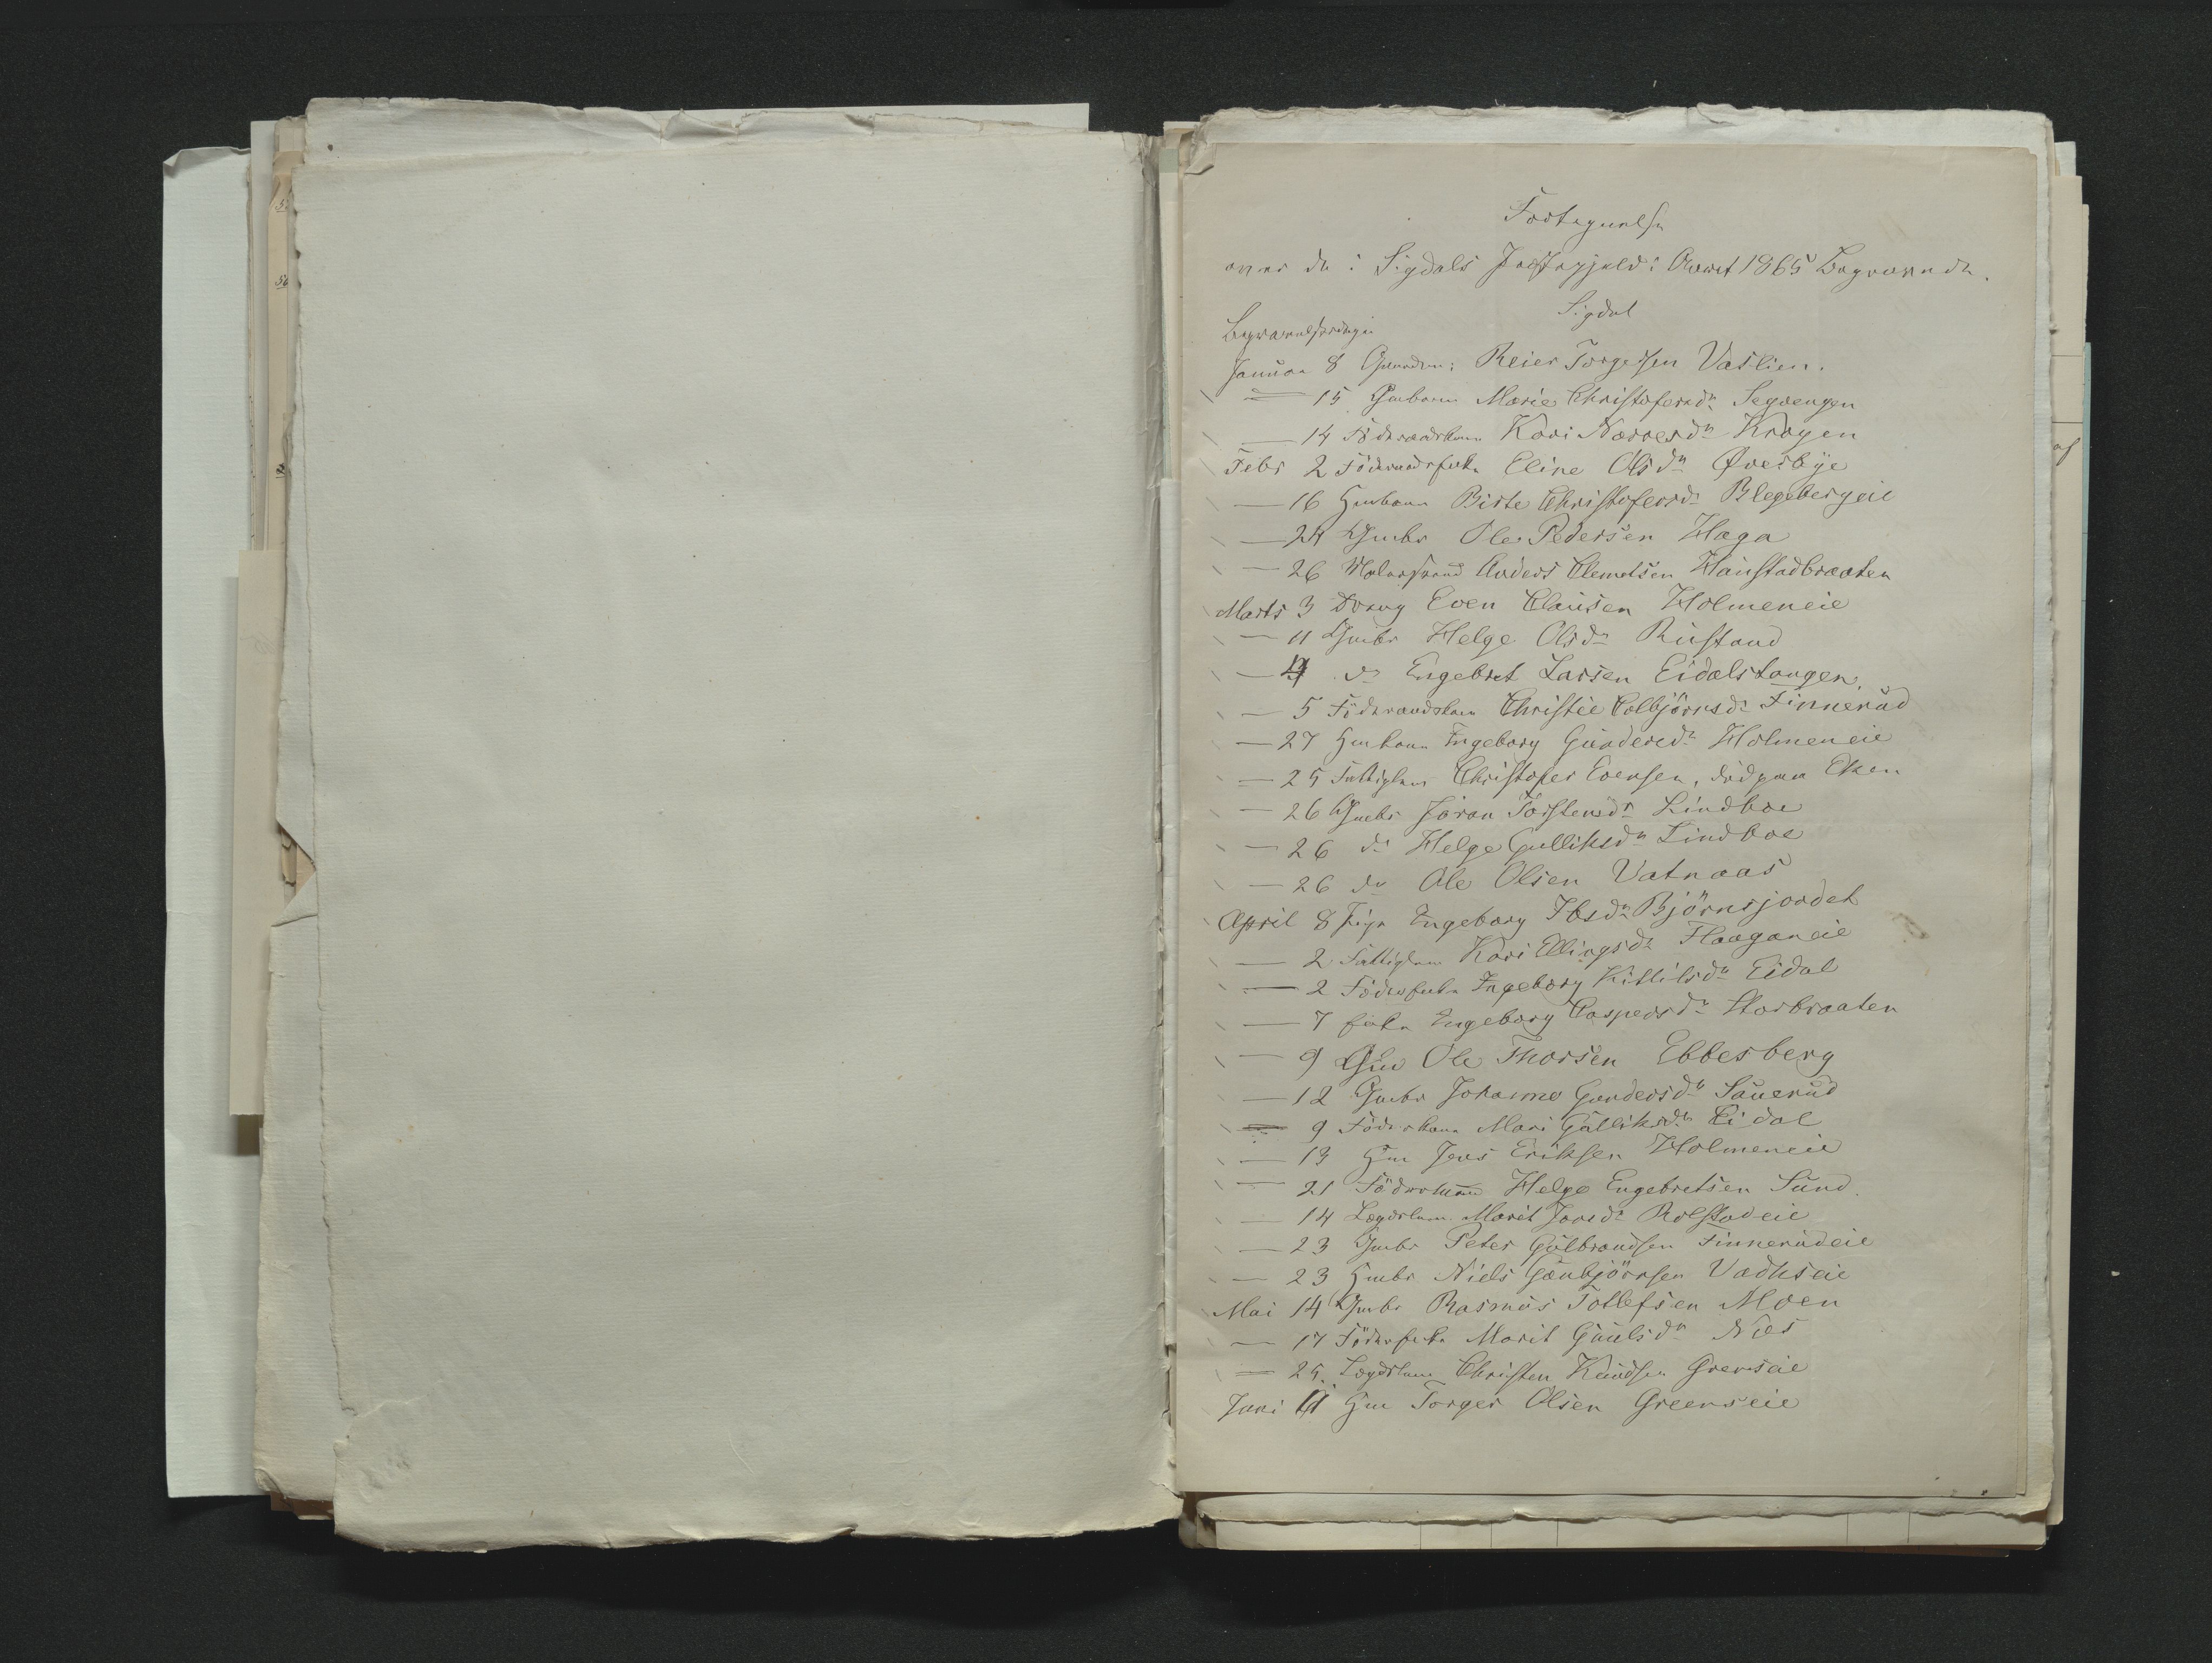 Fortegnelse
over de i Sigdals Præstegjeld i Aaret 1865 Begravede.
Sigdal
Begravelsesdagen
Januar 8 Gaardm: Reier Torgersen Vaslien.
— 15 Gmbarn Marie Christofersdr Segvengen
— 14 Föderaadskone Kari Narvesdr Kragen
Febr 2 Föderaadsenke Eline Olsdr Överbye
— 16 Hmbarn Birte Christofersdr Blegebergeie
— 24 Gmbr Ole Pedersen Haga
— 26 Anders Clemetsen Haustadbraaten
Marts 3 Dreng Even Clausen Holmeneie
— 11 Gmbr Helge Olsdr Rustand
— 4 do Engebret Larsen Eidalstangen.
— 5 Föderaadskone Christie Colbjörnsdr Finnerud
— 27 Hmbarn Ingeborg Gundersdr Holmeneie
— 25 Fattiglem Christofer Evensen, död paa Eken
— 26 Gmbr Jöran Torstensdr Lindboe
— 26 do Helge Gulliksdr Lindboe
— 26 do Ole Olsen Vatnaas
April 8 Pige Engeborg Ibsdr Björnsjordet
— 2 Fattiglem Kari Ellingsdr Haaganeie
— 2 Födrsenke Ingeborg Kittilsdr Eidal
— 7 Enke Engeborg Caspersdr Storbraaten
— 9 Gm Ole Thorsen Ebbesberg
— 12 Gmbr Johanne Gundersdr Sauerud
— 9 Föderskone Mari Gulliksdr Eidal
— 13 Hm Jens Eriksen Holmeneie
— 21 Födrsmand Helge Engebretsen Sund.
— 14 Lægdslem Marit Jonsdr Rolstadeie
— 23 Gmbr Peter Gulbrandsen Finnerudeie
— 23 Hmbr Niels Gunbjörnsen Vadhseie
Mai 14 Gmbr Rasmus Tollefsen Moen
— 17 Födrsenke Marit Guulsdr Næs
— 25. Lægdslem Christen Knudsen Grenseie
Juni 11 Hm Torger Olsen Greenseie